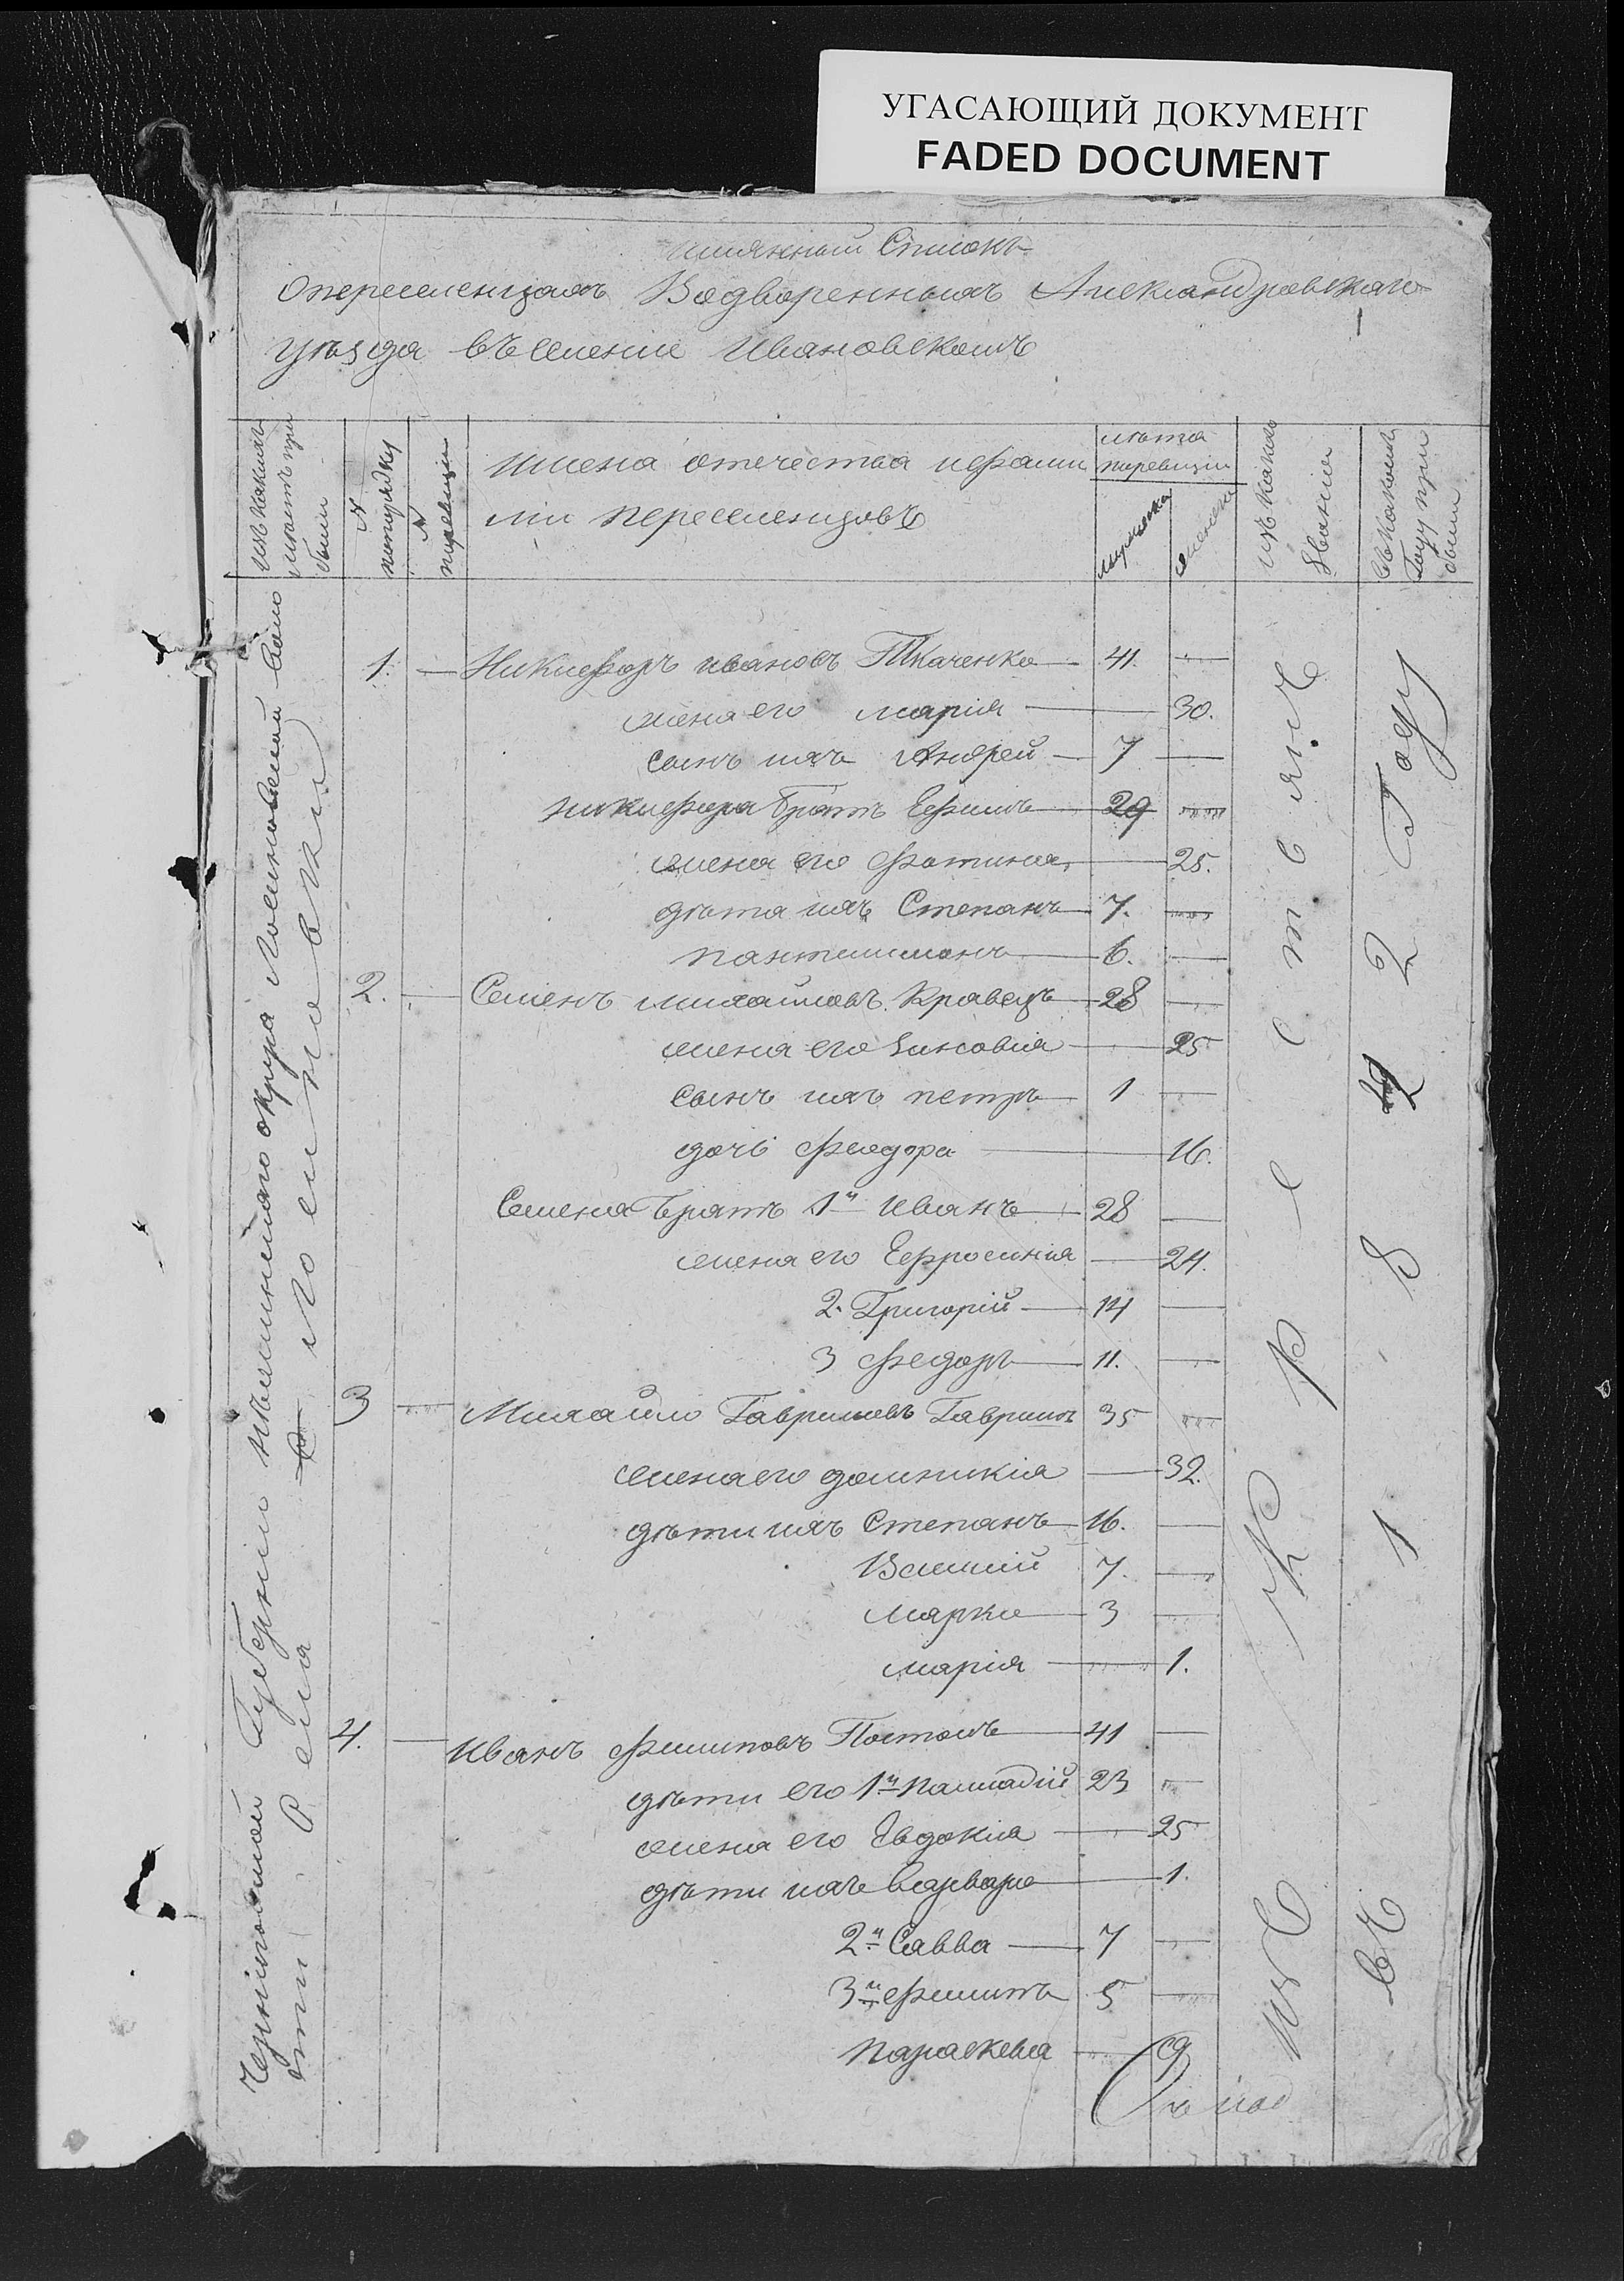 УГАСАЮЩИЙ ДОКУМЕНТ
FADED DOCUMENT
имянный Списокъ
опереселенцахъ Водворенныхъ Александровскаго
уѣзда въселеніе Ивановскомъ
изъ какихъ
мѣстъ при
были
№
попорядку
№
поревизіи
имена отечества ифами
лии переселенцовъ
лѣта
поревизіи
мужеска
женска
изъ какого
званія
въкакомъ
Году при
были
Черниговской Губерніи нѣжинскаго округа
1. — Никифоръ ивановъ Ткаченко — 41. —
жена его марія — 30.
сынъ ихъ Андрей — 7 —
никифора братъ Ефимъ — 29 —
жена его Фотиния — 25.
дѣти ихъ Степанъ — 7. —
пантилимонъ — 6. —
2. — Семенъ михайловъ Кравецъ — 28 —
жена его Зиновія — 25
сынъ ихъ петръ — 1 —
дочі Феодора — 16.
Семена братъ 1й Иванъ — 28 —
жена его Ефросинія — 24.
2. Григорій — 14 —
3 Федоръ — 11. —
3 — Михайло Гавриловъ Гаврилъ 35 —
жена его домникія — 32.
дѣти ихъ Степанъ — 16. —
Василий 7. —
Марко — 3 —
марія — 1.
4. — Иванъ Филиповъ Постолъ — 41 —
дѣти его 1й палладій 23 —
жена его Евдокія — 25
дѣти ихъ варвара — 1.
2й Савва — 7 —
3й Филипъ 5 —
параскева — 9
изъ Крестьянъ
въ 1822 Году